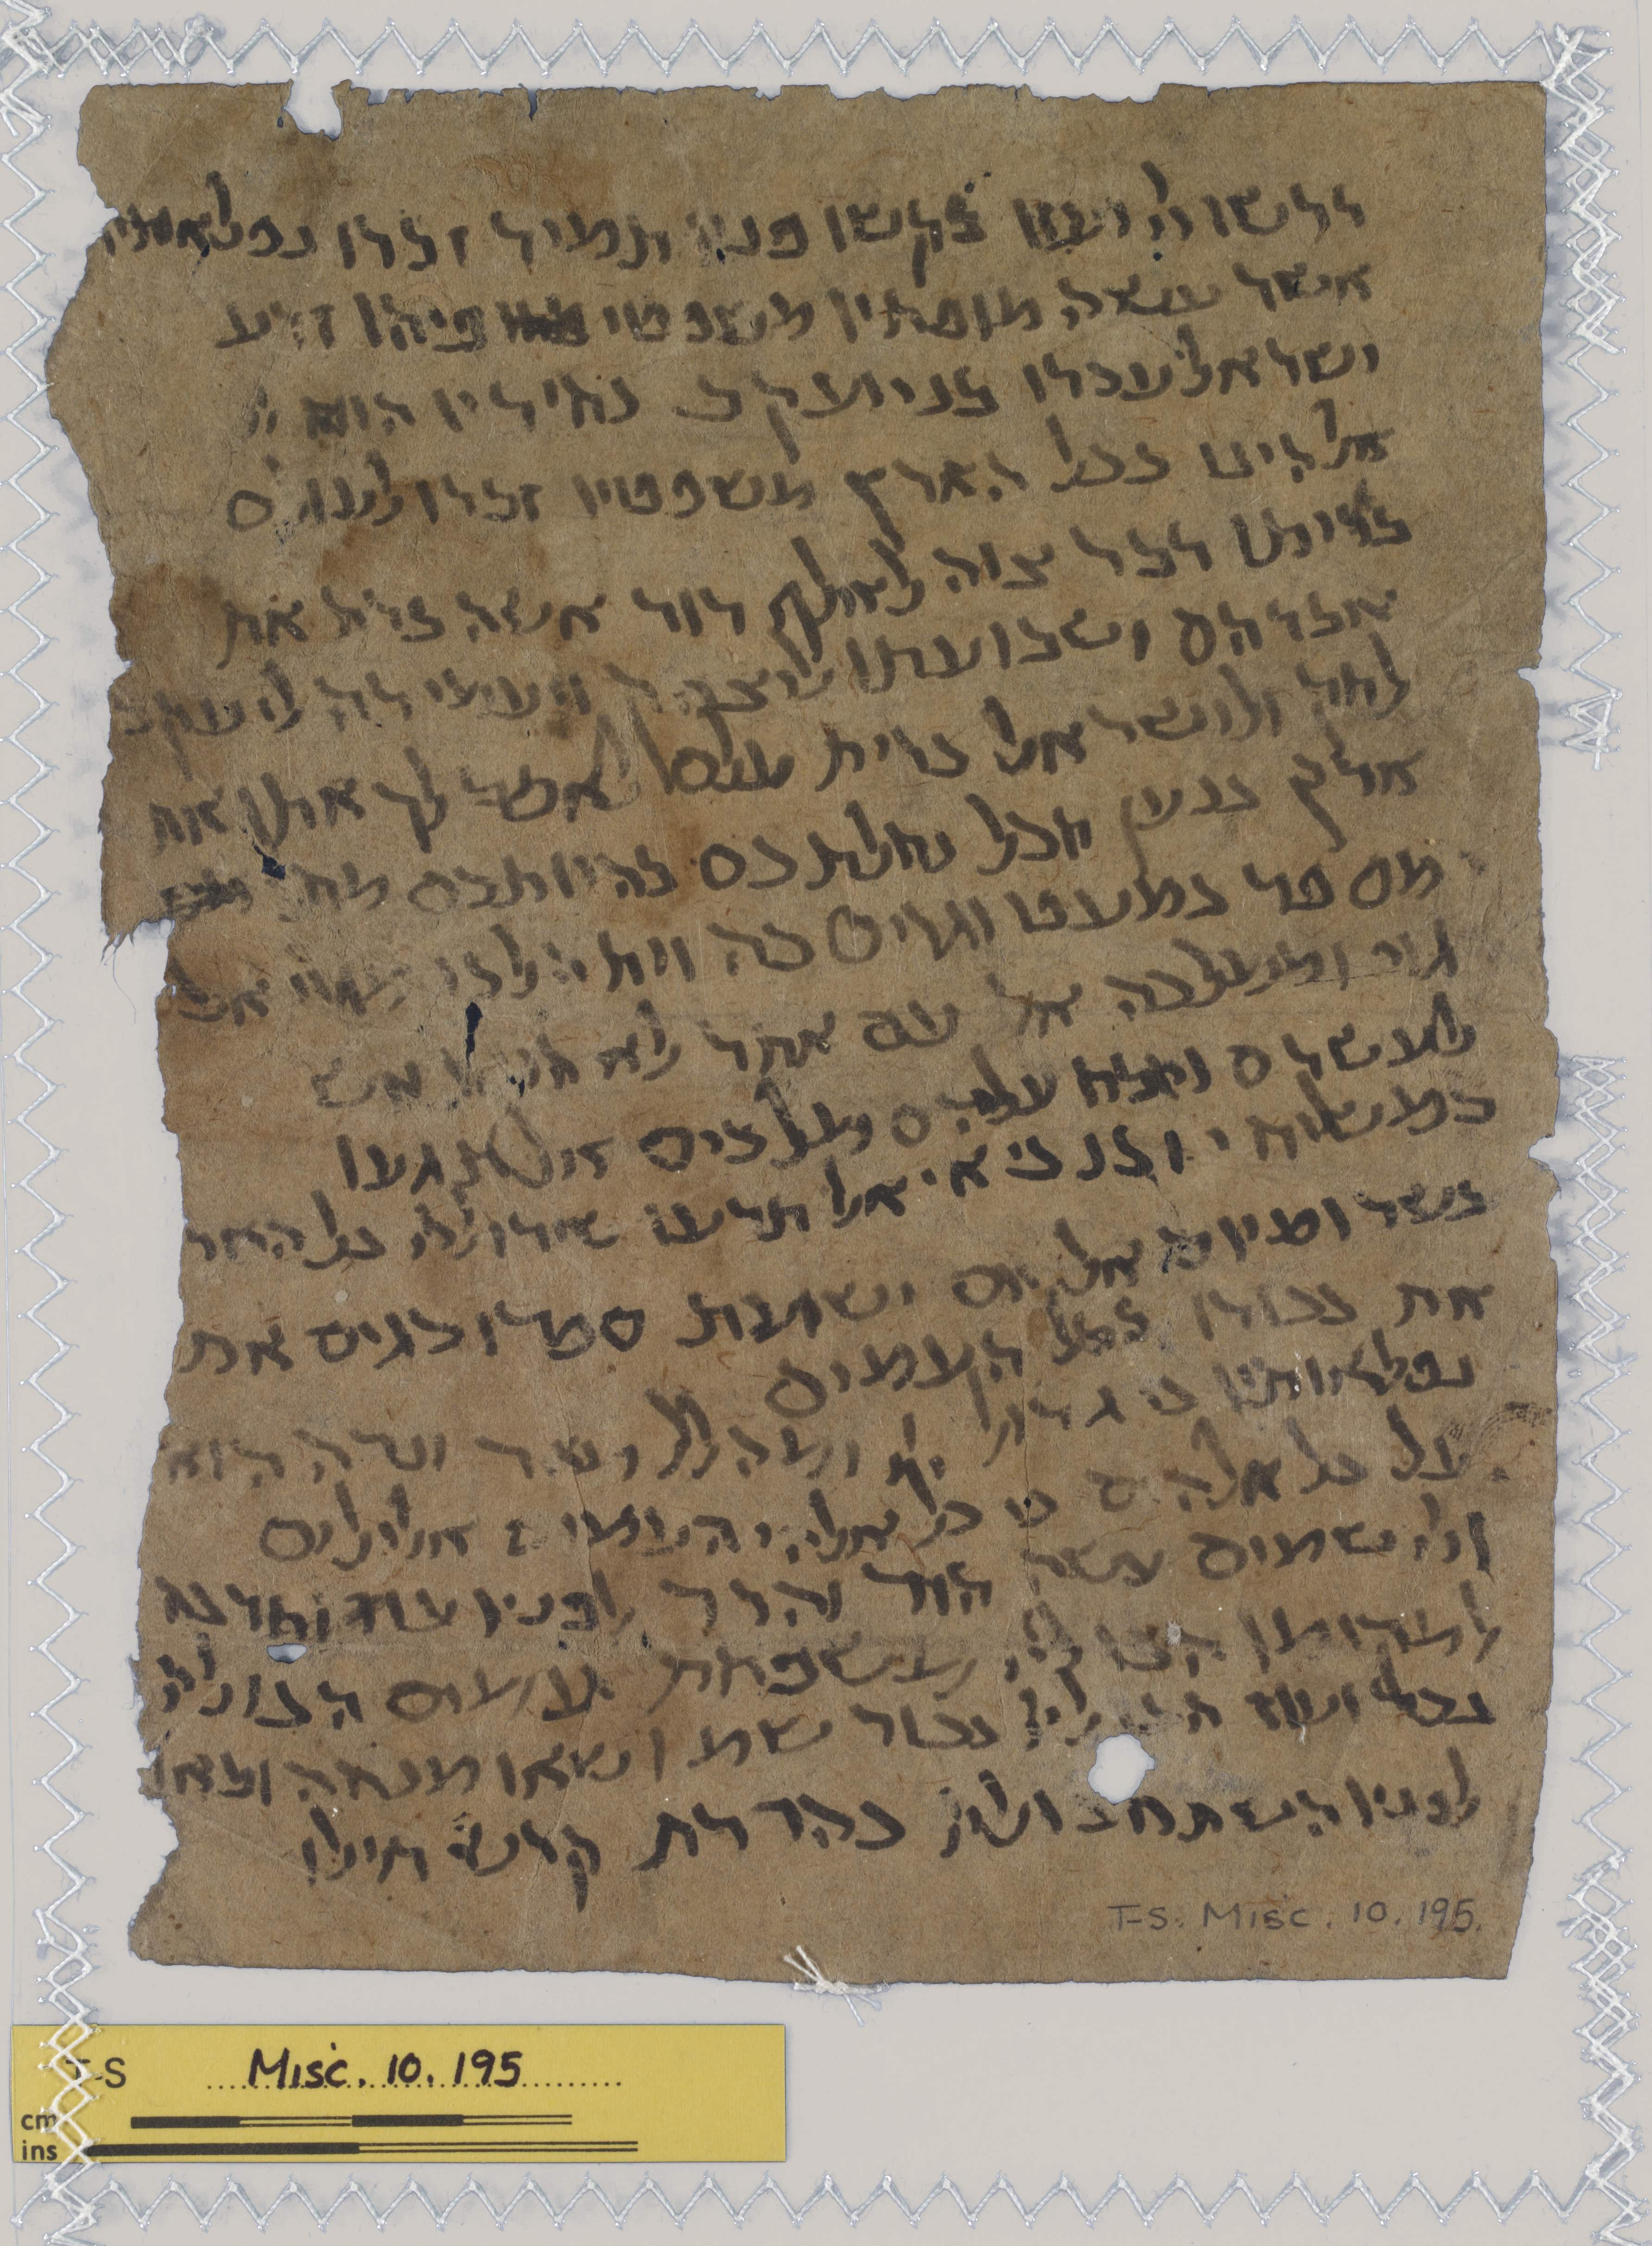 דרשו ועזו בקשו פניו תמיד זכרו נפלאותיו
אשר עשה מופתיו משפטי פיהו זרע
ישראל עבדו בני יעקב בחיריו הוא
אלהינו בכל הארץ משפטיו זכרו לעולם
בריתו דבר צוה לאלף דור אשר כרת את
אברהם ושבועתו ליצחק ויעמידה ליעקב
לחק ולישראל ברית עולם לאמר לך אתן את
ארץ כנען חבל נחלתכם בהיותכם מתי
מספר כמעט וגרים בה ויתהלכו מגוי אל
גוי וממלכה אל עם אחר לא הניח איש
לעשקם ויוכח עליהם מלכים אל תגעו
במשיחי ובנביאי אל תרעו שירו כל הארץ
בשרו מיום אל יום ישועתו ספרו בגוים את
את כבודו בכל העמים
נפלאותיו כי גדול ומהלל מאד ונורא הוא
על כל אלהים כי כל אלהי העמים אלילים
שמים עשה הוד והדר לפניו עוז וחדוה
במקומו הבו משפחות עמים הבו
כבוד ועוז הבו כבוד שמו שאו מנחה ובאו
לפניו השתחוו בהדרת קדש חילו
T-S. Misc. 10. 195.
T-S Misc. 10. 195
cm
ins